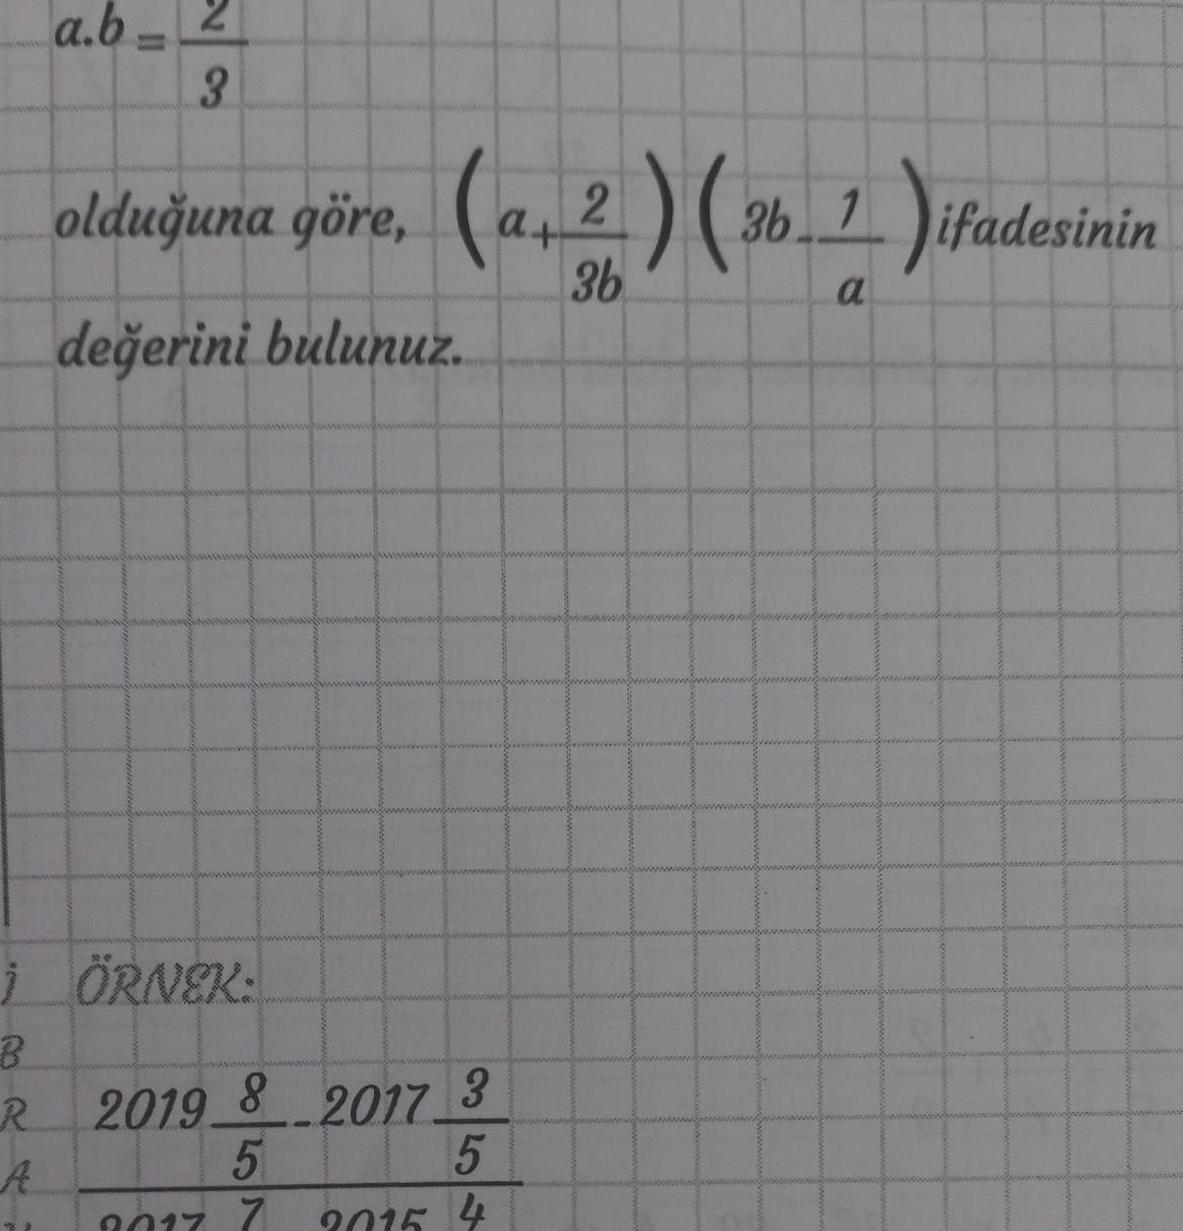 a.b = 2/3
olduğuna göre, (a + 2/3b) (3b - 1/a) ifadesinin
değerini bulunuz.
İ ÖRNEK:
B
R 2019 8/5 - 2017 3/5
A
2017 7 2015 4